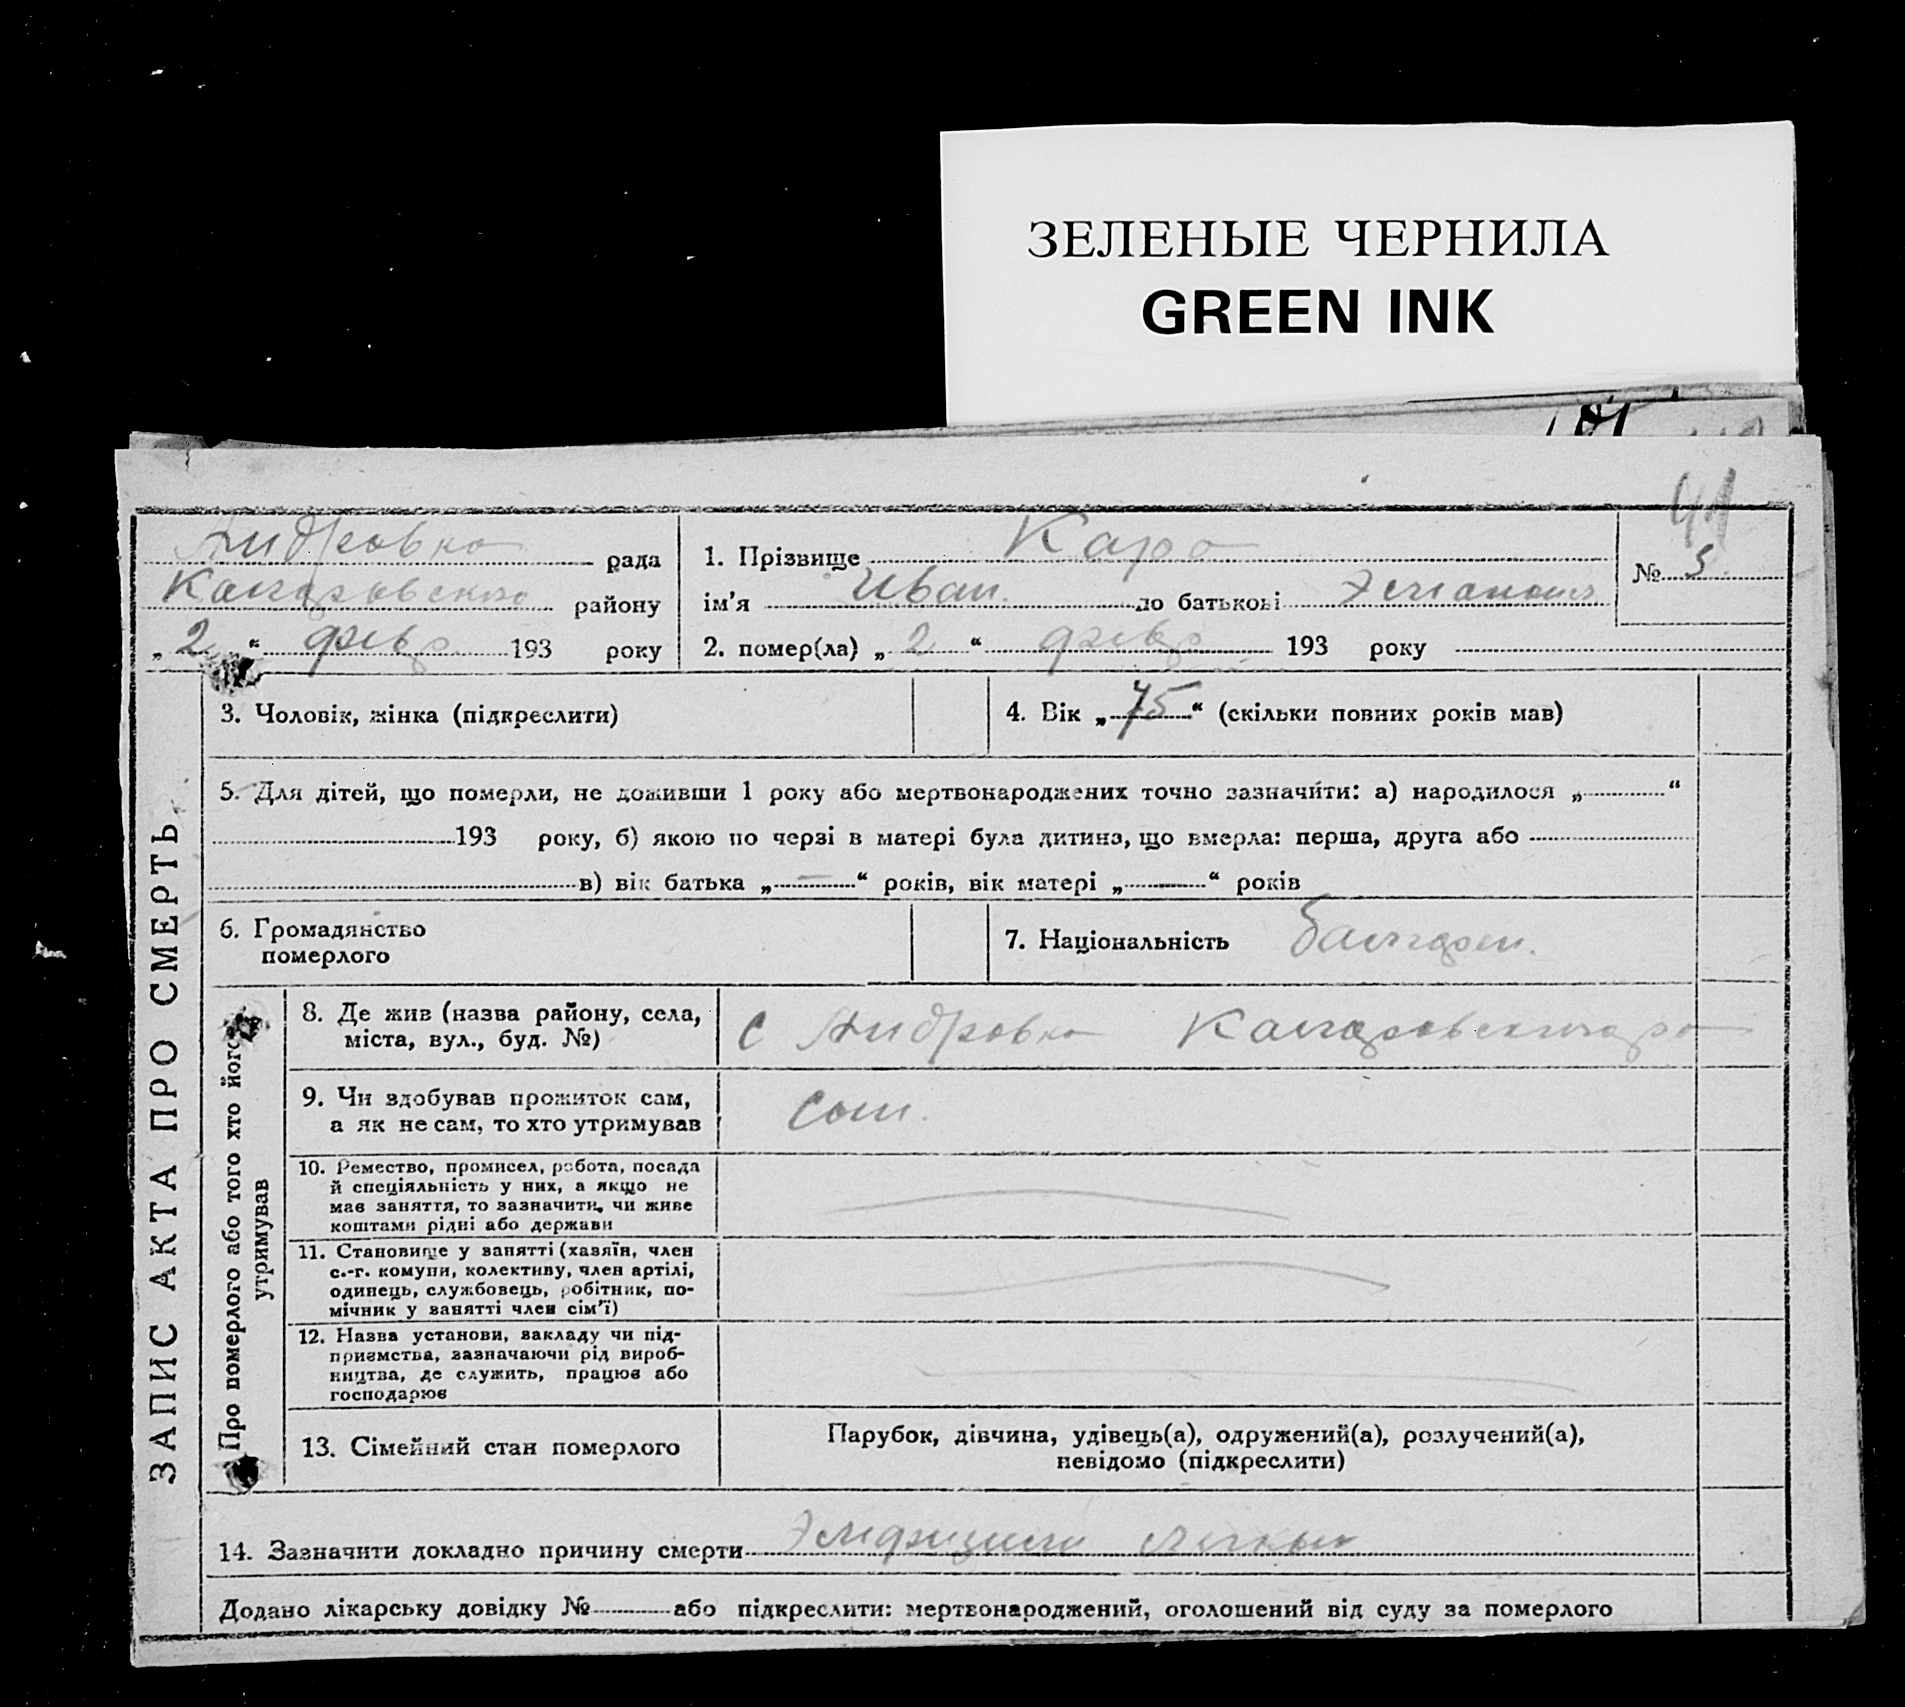 ЗЕЛЕНЫЕ ЧЕРНИЛА
GREEN INK
41
Андровка рада
района районy
„2“ февр. 193 року
1. Прізвище Кара
ім’я Иван по батькові
№ 5
2. помер(ла) „2“ февр 193 року
3. Чоловік, жінка (підкреслити)
4. Вік „75“ (скільки повних років мав)
5. Для дітей, що померли, не доживши 1 року або мертвонароджених точно зазначити: а) народилося „ “
193 року, б) якою по черзі в матері була дитина, що вмерла: перша, друга або
в) вік батька „—“ років, вік матері „—“ років
6. Громадянство
померлого
7. Національність болгарин.
ЗАПИС АКТА ПРО СМЕРТЬ
Про померлого або того хто його
утримував
8. Де жив (назва району, села,
міста, вул., буд. №)
с Андровка
9. Чи здобував прожиток сам,
а як не сам, то хто утримував
сам.
10. Ремество, промисел, робота, посада
й спеціяльність у них, а якщо не
має заняття, то зазначити, чи живе
коштами рідні або держави
11. Становище у занятті (хазяїн, член
с.-г. комуни, колективу, член артілі,
одинець, службовець, робітник, по-
мічник у занятті член сім’ї)
12. Назва установи, закладу чи під-
приємства, зазначаючи рід вироб-
ництва, де служить, працює або
господарює
13. Сімейний стан померлого
Парубок, дівчина, удівець(а), одружений(а), розлучений(а),
невідомо (підкреслити)
14. Зазначити докладно причину смерти легких
Додано лікарську довідку № або підкреслити: мертвонароджений, оголошений від суду за померлого